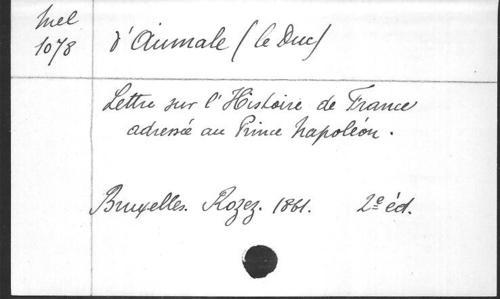 Mel
1078
d'Aumale (le Duc)
Lettre sur l'Histoire de France
adressée au Prince Napoléon.
Bruxelles. Rozez. 1861. 2e éd.